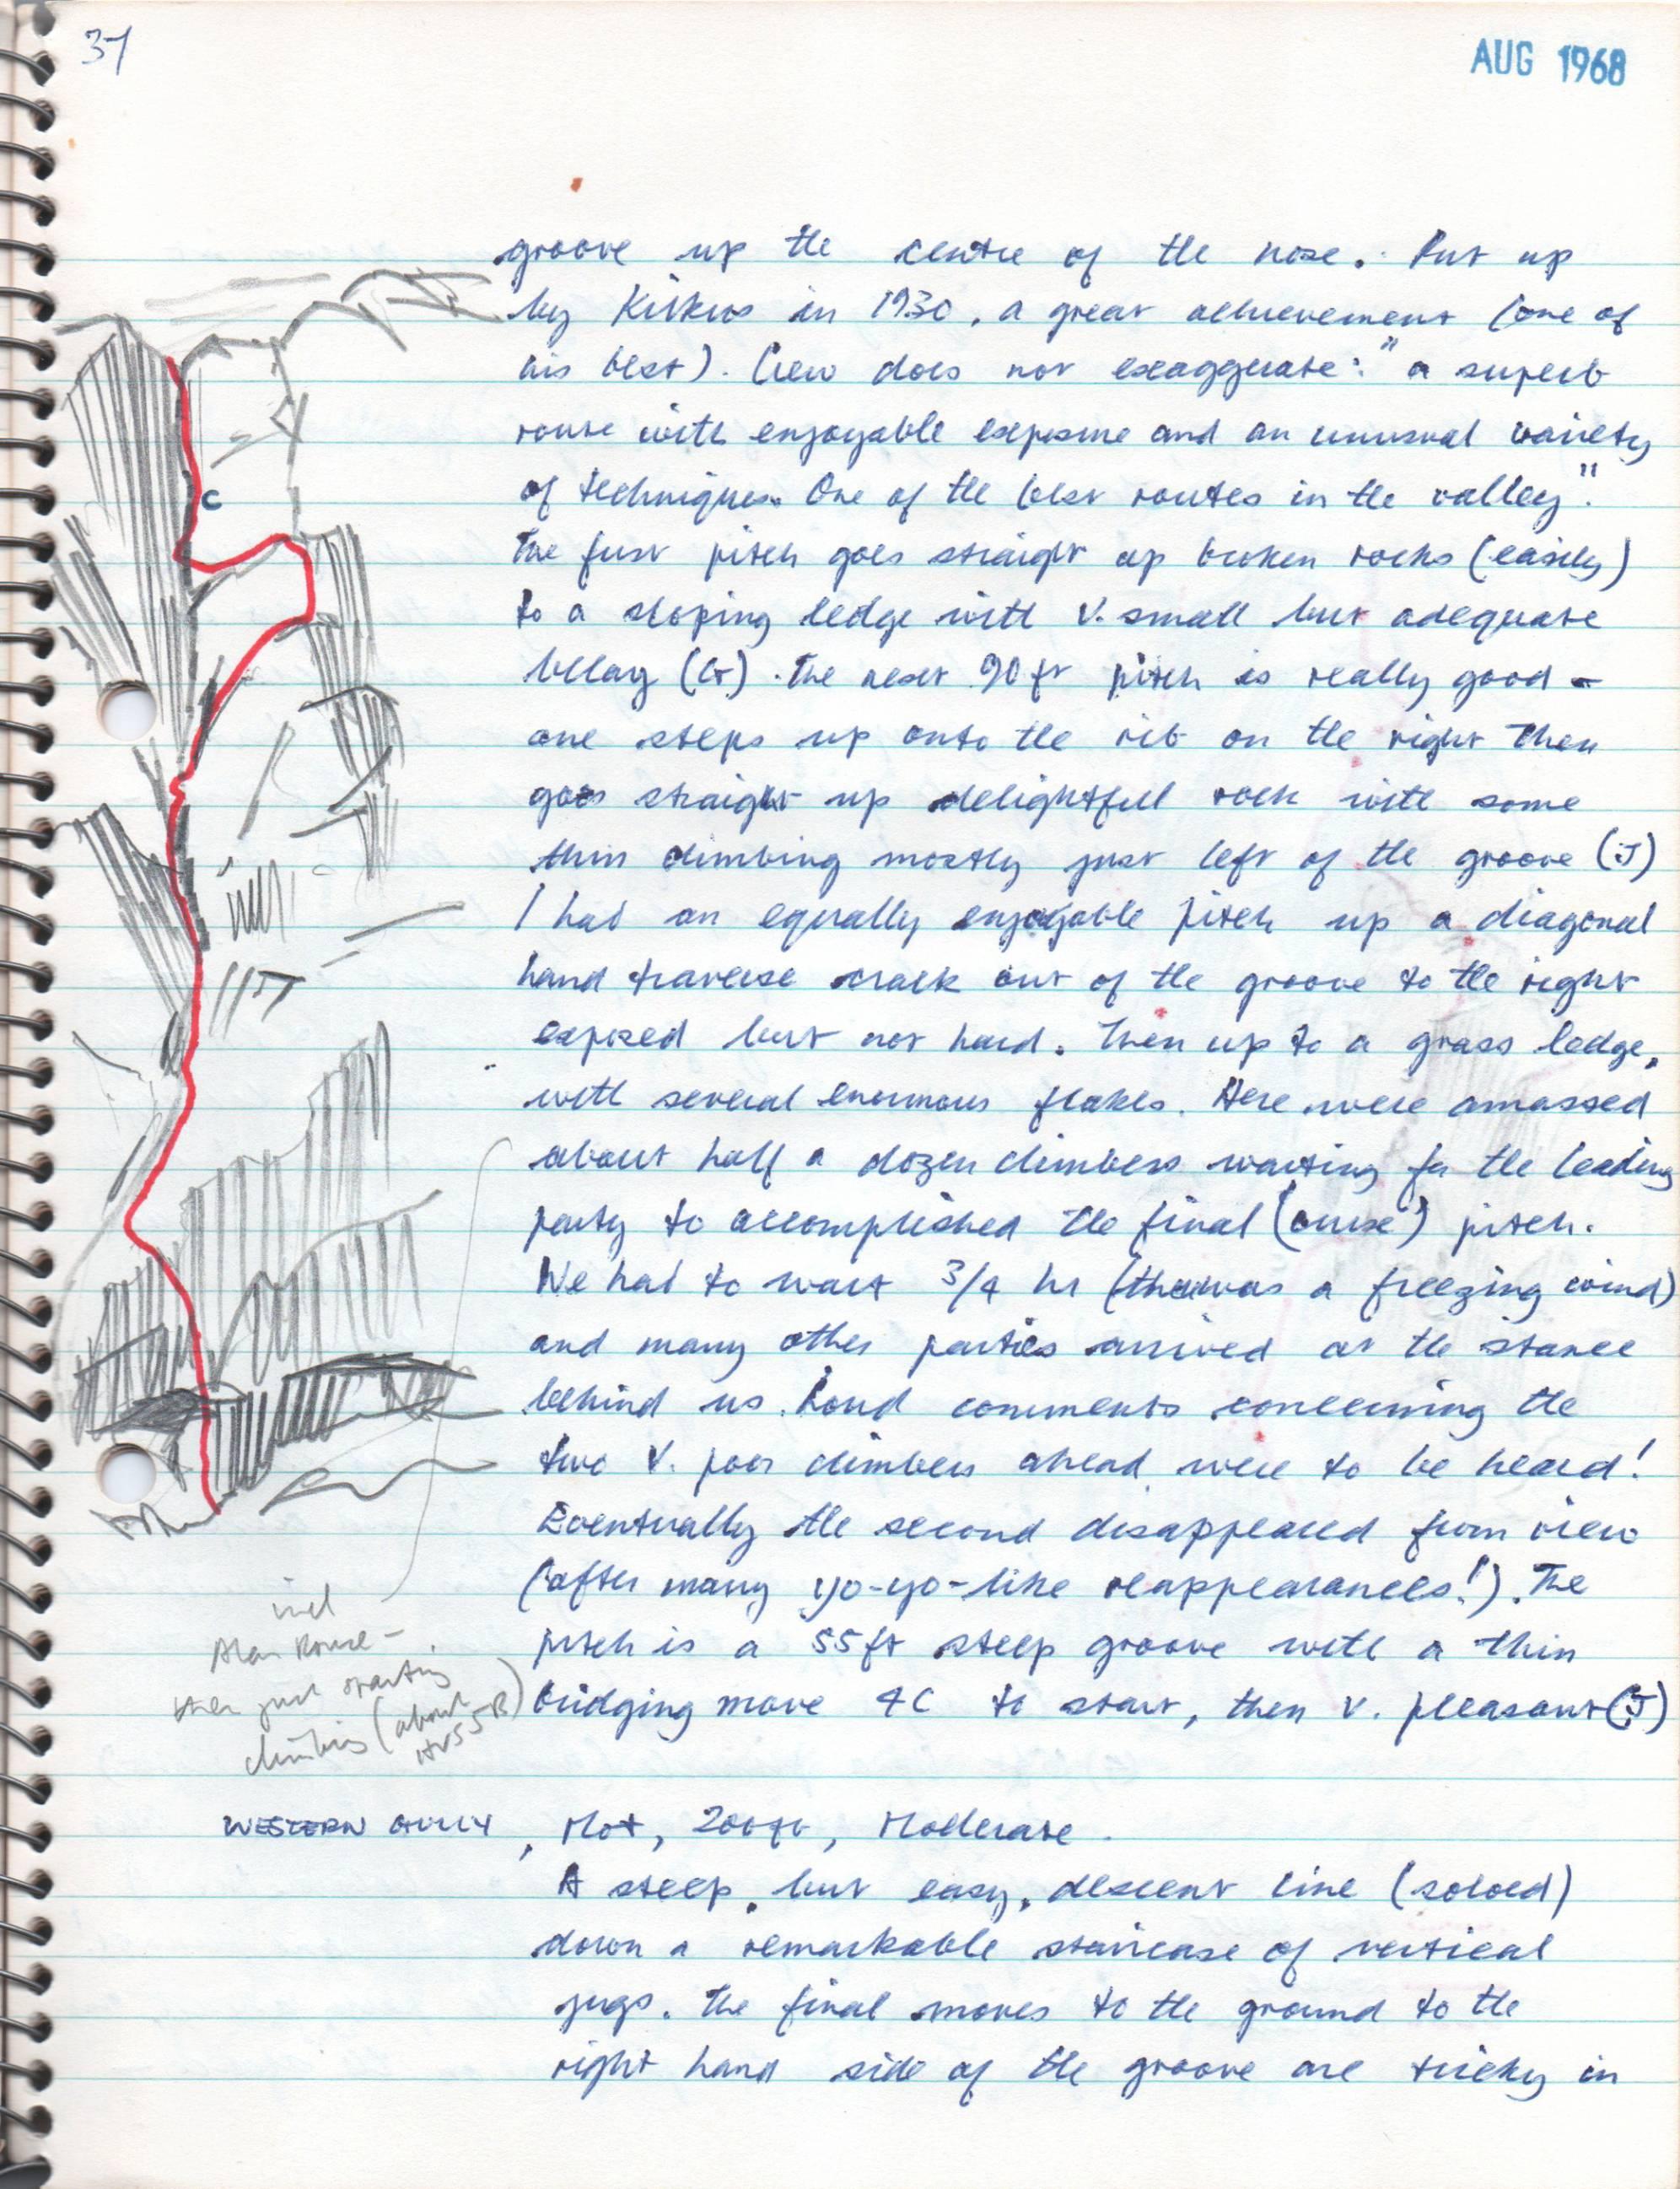 37
AUG 1968
groove up the centre of the nose. Put up
by Kirkus in 1930, a great achievement (one of
his best). Crew does not exaggerate: "a superb
route with enjoyable exposure and an unusual variety
of techniques. One of the best routes in the valley".
The first pitch goes straight up broken rocks (easily)
to a sloping ledge with v. small but adequate
belay (G). The next 90 ft pitch is really good -
one steps up onto the rib on the right then
goes straight up delightful rock with some
thin climbing mostly just left of the groove (J)
I had an equally enjoyable pitch up a diagonal
hand traverse crack out of the groove to the right
exposed but not hard. Then up to a grass ledge,
with several enormous flakes. Here were amassed
about half a dozen climbers waiting for the leading
party to accomplished the final (crux) pitch.
We had to wait 3/4 hr (there was a freezing wind)
and many other parties arrived at the stance
behind us. Loud comments concerning the
two v. poor climbers ahead were to be heard!
Eventually the second disappeared from view
(after many yo-yo-like reappearances!). The
pitch is a 55ft steep groove with a thin
bridging move 4C to start, then v. pleasant (J)
C
incl
Alan Rouse -
then just starting
climbing (about
HVS 5B)
WESTERN GULLY, Mot, 200ft, Moderate.
A steep, but easy, descent line (soloed)
down a remarkable staircase of vertical
jugs. The final moves to the ground to the
right hand side of the groove are tricky in